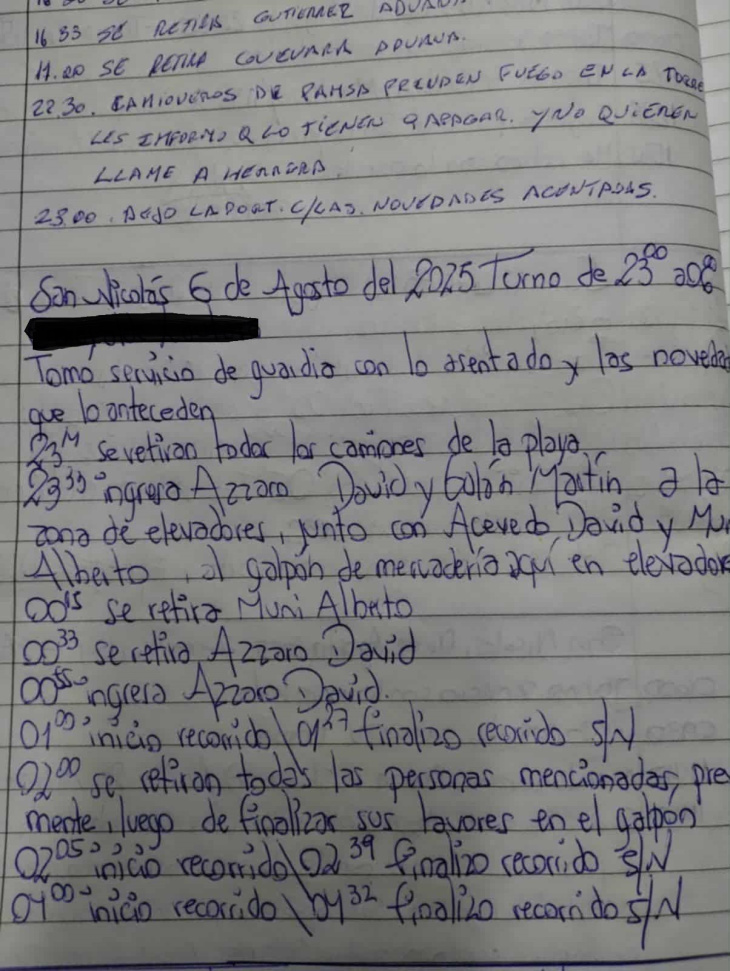 16 33 SE RETIRA GUTIERREZ ADUANA
17.20 SE RETIRA COUEVARA ADUANA.
22.30. CAMIONEROS DE PAMSA PRENDEN FUEGO EN LA TORRE
LES INFORMO Q LO TIENEN Q APAGAR. Y NO QUIEREN
LLAME A HERRERA.
23.00. DEJO LA PORT. C/LAS. NOVEDADES ACENTADAS.
San Nicolás 6 de Agosto del 2025 Turno de 23⁰⁰ a 06⁰⁰
Tomo servicio de guardia con lo asentado y las noveda
que lo anteceden
23 se retiran todos los camiones de la playa
23³³ ingresa Azzaro David y Galán Martín a la
zona de elevadores, junto con Acevedo David y Mun
Alberto, al galpón de mercadería aquí en elevadore
00¹⁵ se retira Muni Alberto
00³³ se retira Azzaro David
00⁵⁵ ingresa Azzaro David.
01⁰⁰ inicio recorrido \ 01²⁷ finalizo recorrido S/N
02⁰⁰ se retiran todas las personas mencionadas, pre
mente, luego de finalizar sus lavores en el galpón
02⁰⁵ inicio recorrido \ 02³⁹ finalizo recorrido S/N
04⁰⁰ inicio recorrido \ 04³² finalizo recorrido S/N